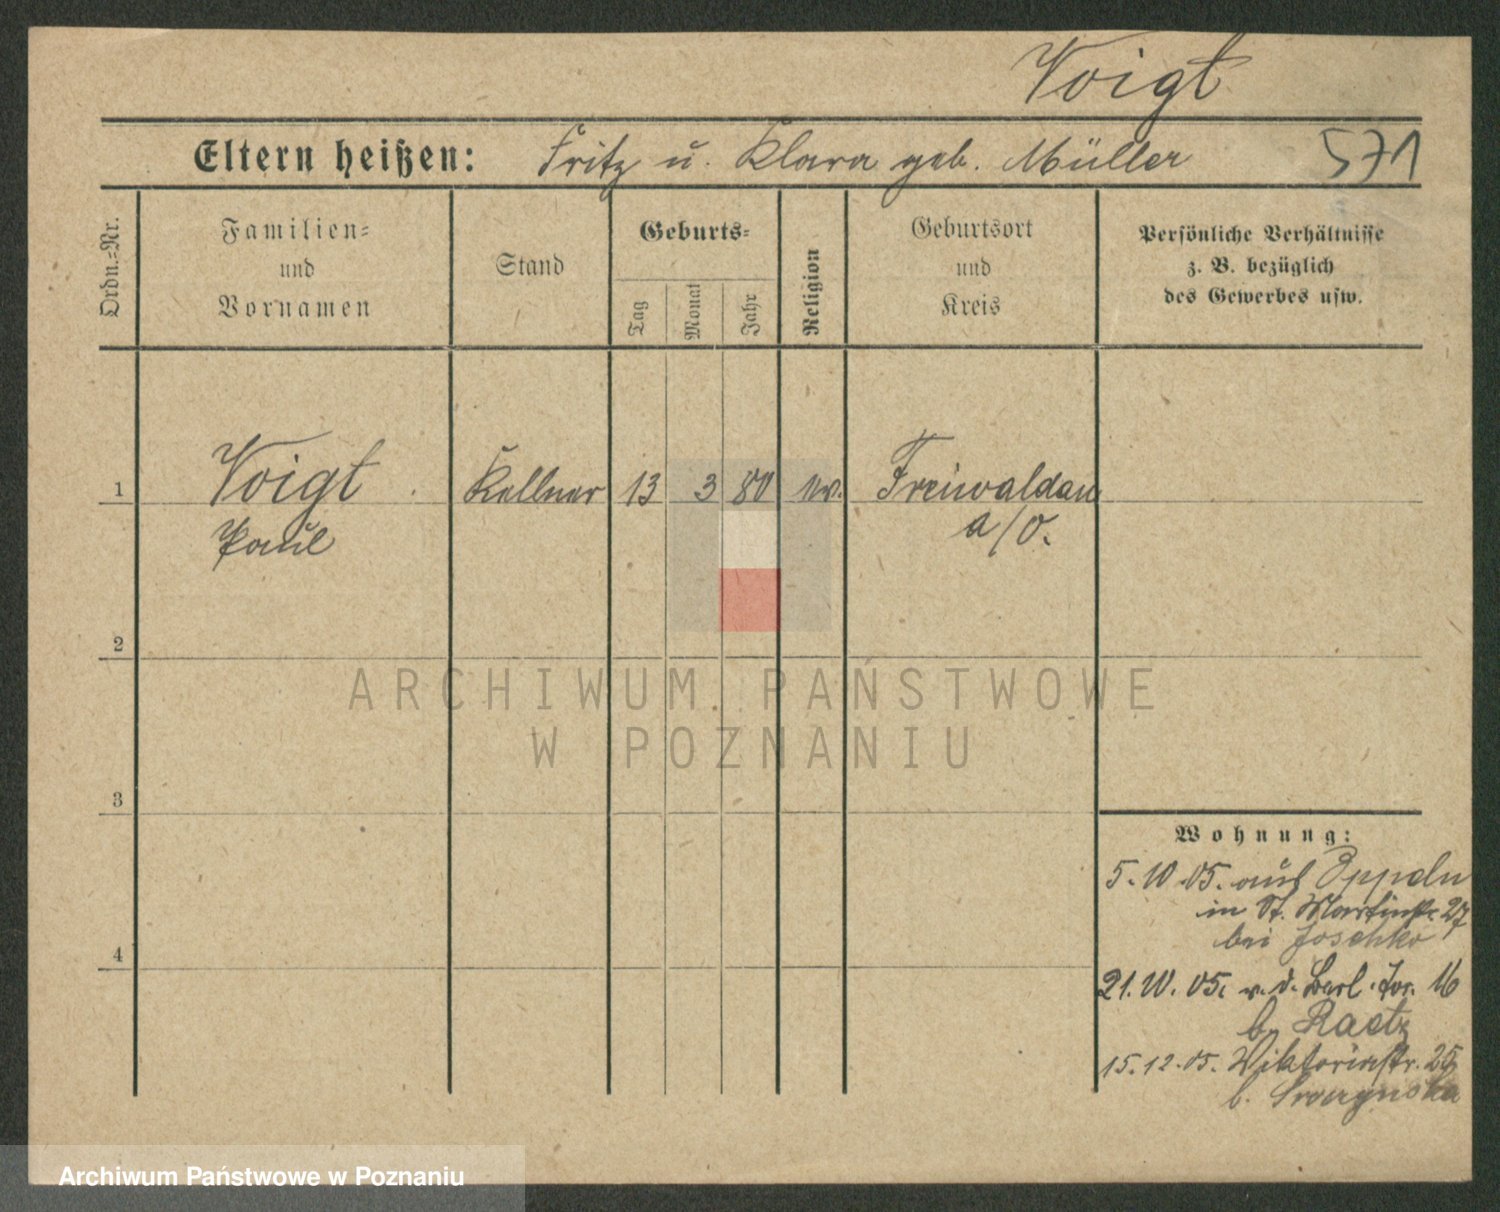 Voigt
Eltern heißen: Fritz u. Klara geb. Müller 571
Ordn.-Nr.
Familien- und Vornamen
Stand
Geburts-
Tag
Monat
Jahr
Religion
Geburtsort und Kreis
Persönliche Verhältnisse
z. B. bezüglich
des Gewerbes usw.
1 Voigt Kellner 13 3 80 ev. Freiwaldau
Paul a/O.
2
3
4
Wohnung:
5.10.05. aus Oppeln
in St. Martinstr. 27
bei Joschko
21.10.05. v. d. Berl. Tor. 16
b. Raetz
15.12.05. Viktoriastr. 25
b.
ARCHIWUM PAŃSTWOWE
W POZNANIU
Archiwum Państwowe w Poznaniu